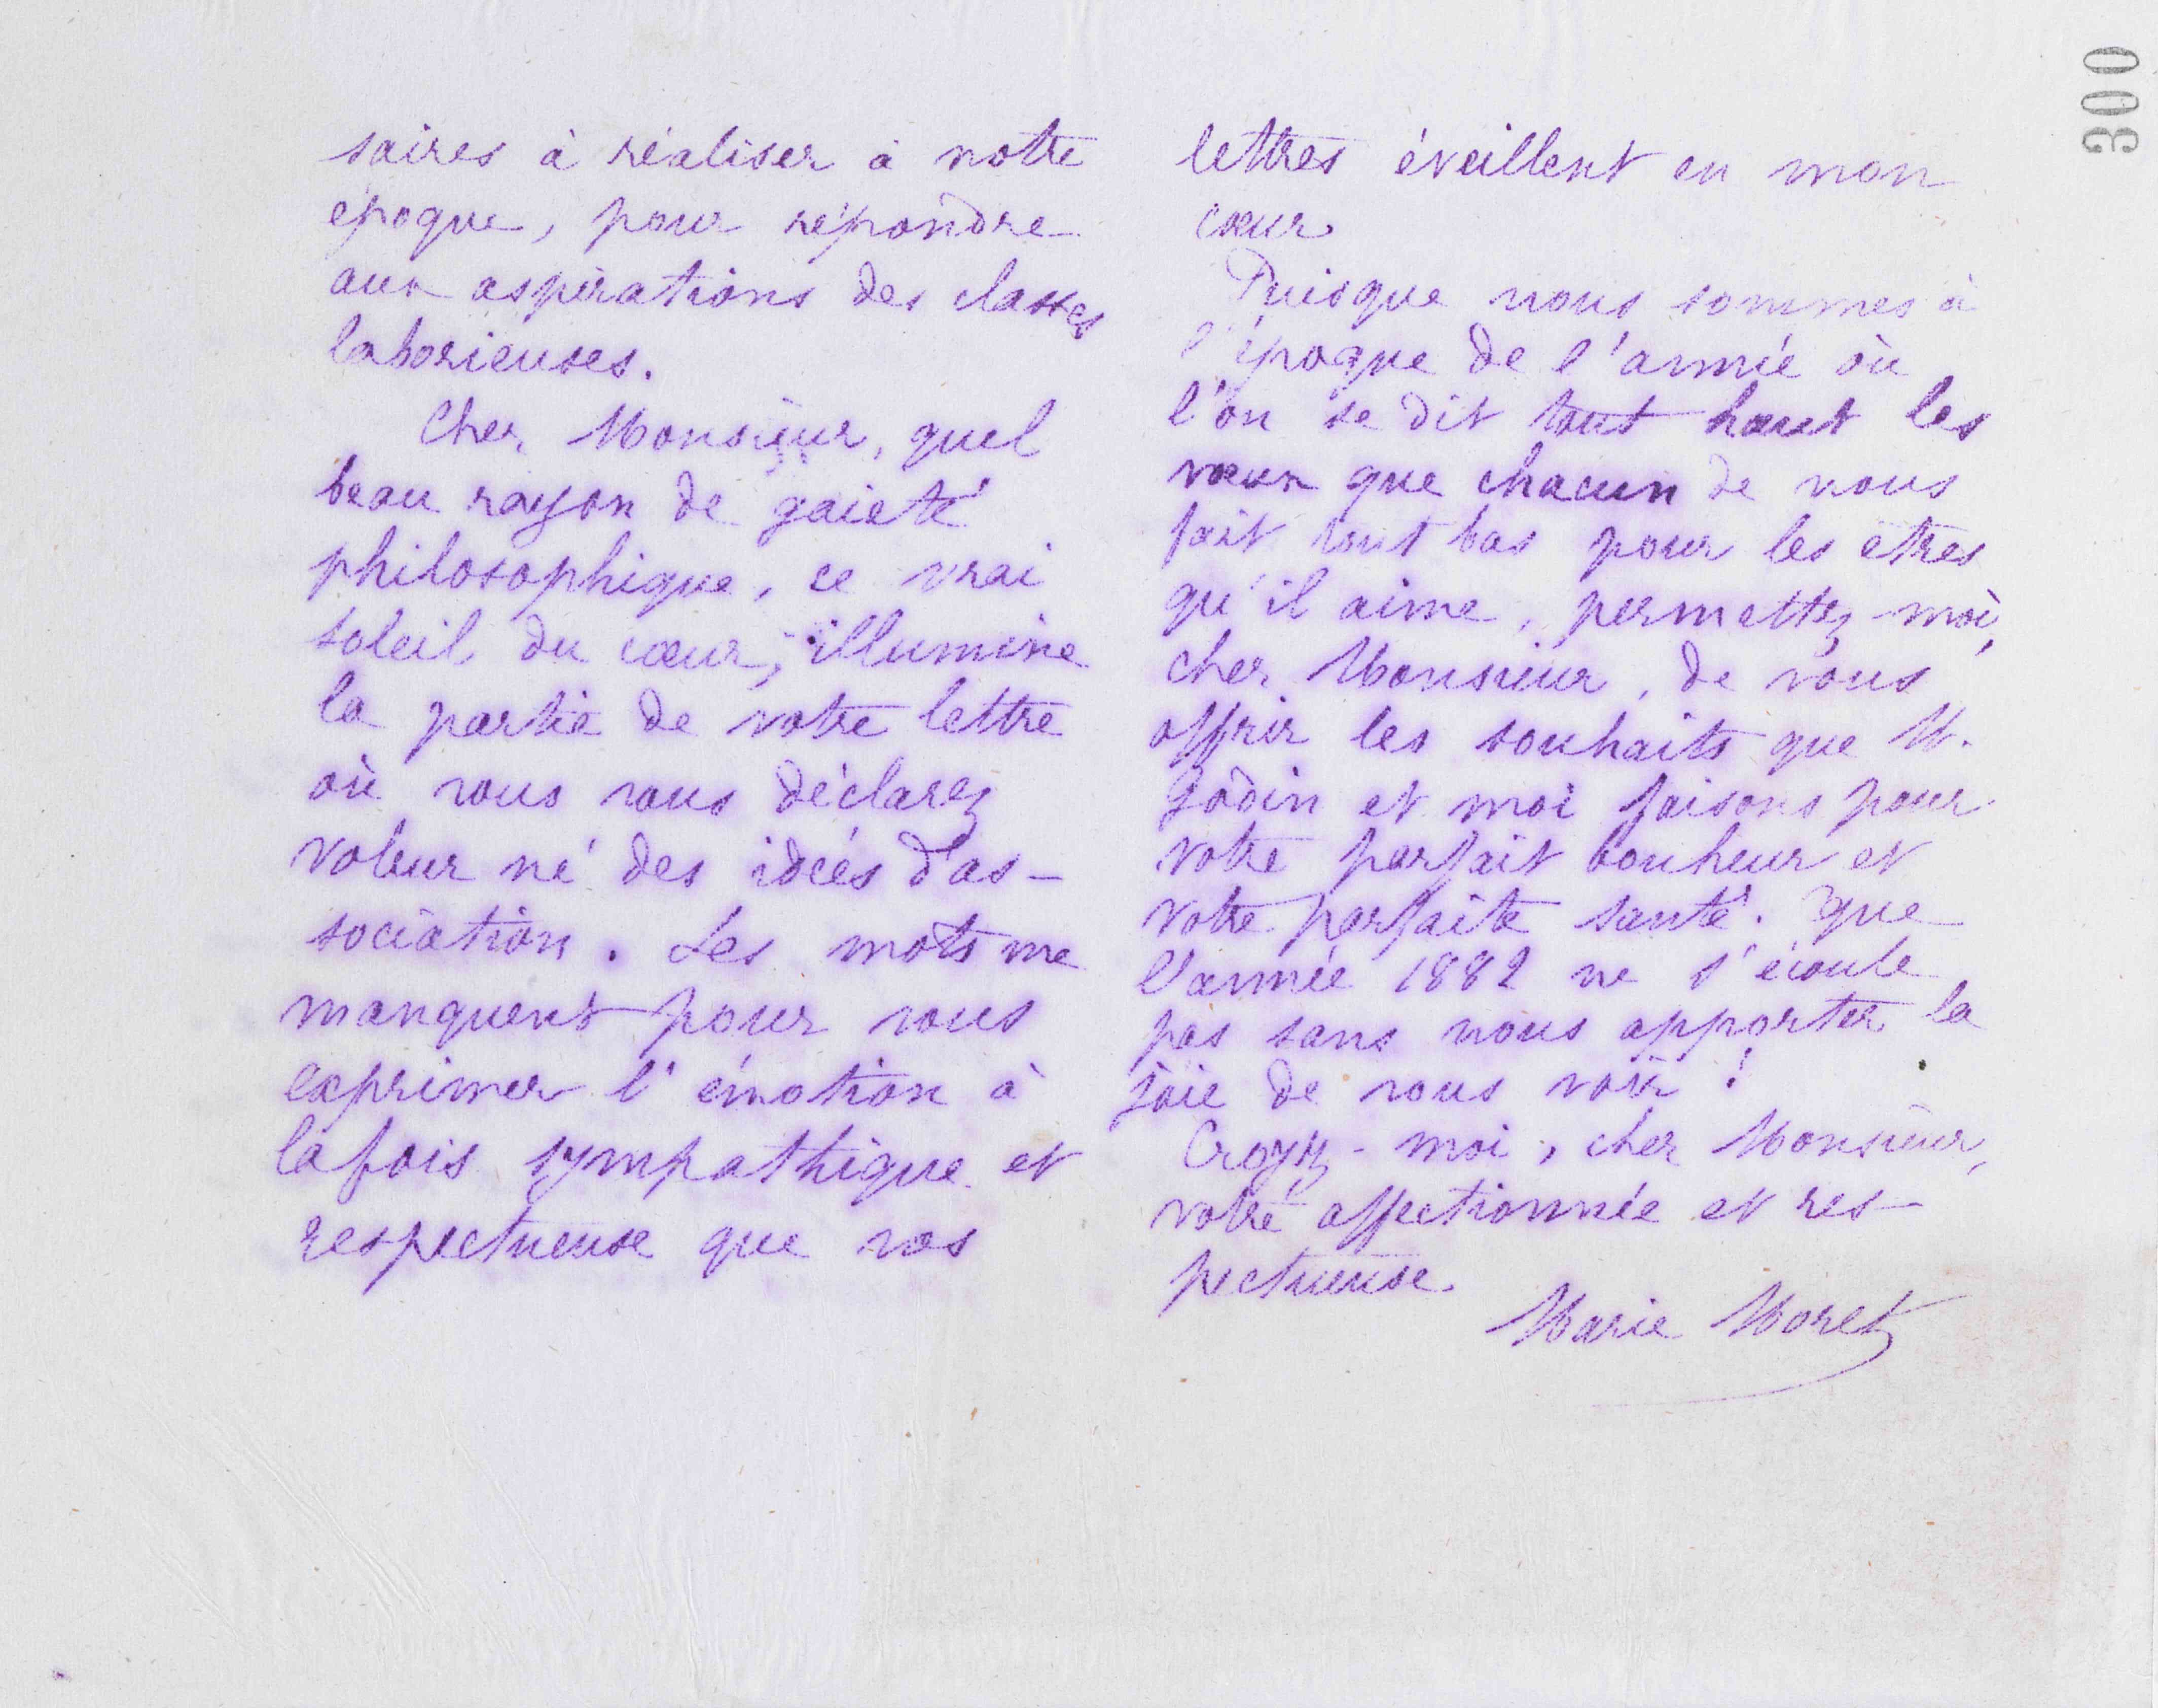 saires à réaliser à notre
époque, pour répondre
aux aspirations des classes
laborieuses.
Cher Monsieur, quel
beau rayon de gaieté
philosophique, ce vrai
soleil du cœur, illumine
la partie de votre lettre
où vous vous déclarez
voleur né des idées d'as-
sociation. Les mots me
manquent pour vous
exprimer l'émotion à
la fois sympathique et
respectueuse que vos
lettres éveillent en mon
cœur.
Puisque nous sommes à
l'époque de l'année où
l'on se dit tout haut les
vœux que chacun de nous
fait tout bas pour les êtres
qu'il aime, permettez-moi,
cher Monsieur, de vous
offrir les souhaits que M.
Godin et moi faisons pour
votre parfait bonheur et
votre parfaite santé. Que
l'année 1882 ne s'écoule
pas sans nous apporter la
joie de vous voir !
Croyez-moi, cher Monsieur,
votre affectionnée et res-
pectueuse.
Marie Moret
300